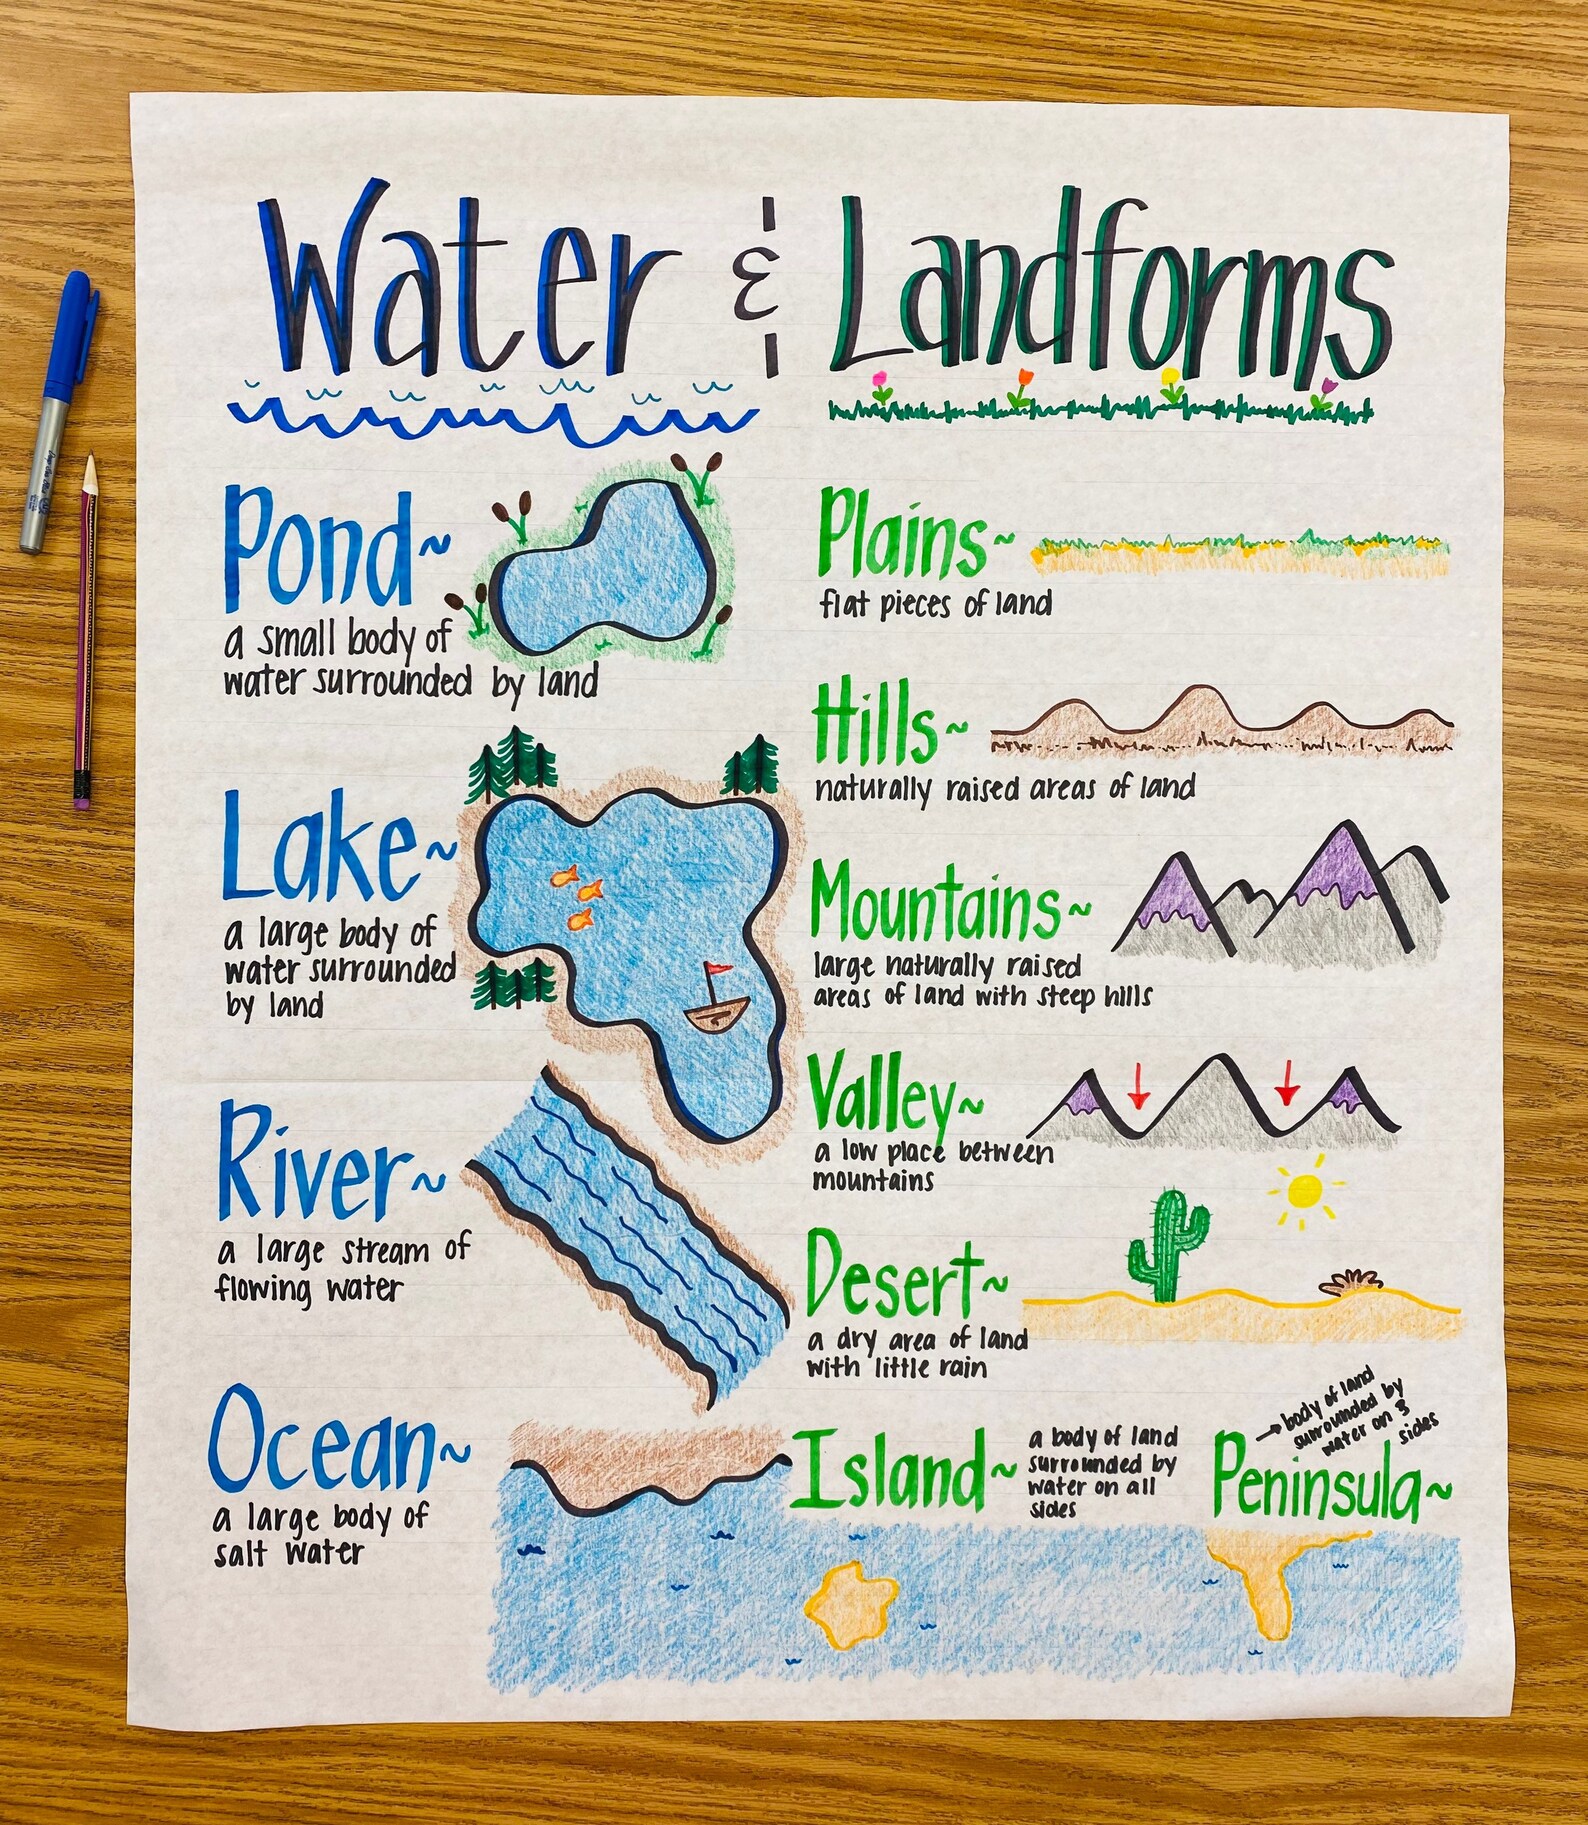 Water & Landforms
Pond~
a small body of
water surrounded by land
Lake~
a large body of
water surrounded
by land
River~
a large stream of
flowing water
Ocean~
a large body of
salt water
Plains~
flat pieces of land
Hills~
naturally raised areas of land
Mountains~
large naturally raised
areas of land with steep hills
Valley~
a low place between
mountains
Desert~
a dry area of land
with little rain
Island~
a body of land
surrounded by
water on all
sides
Peninsula~
→ body of land
surrounded by
water on 3
sides